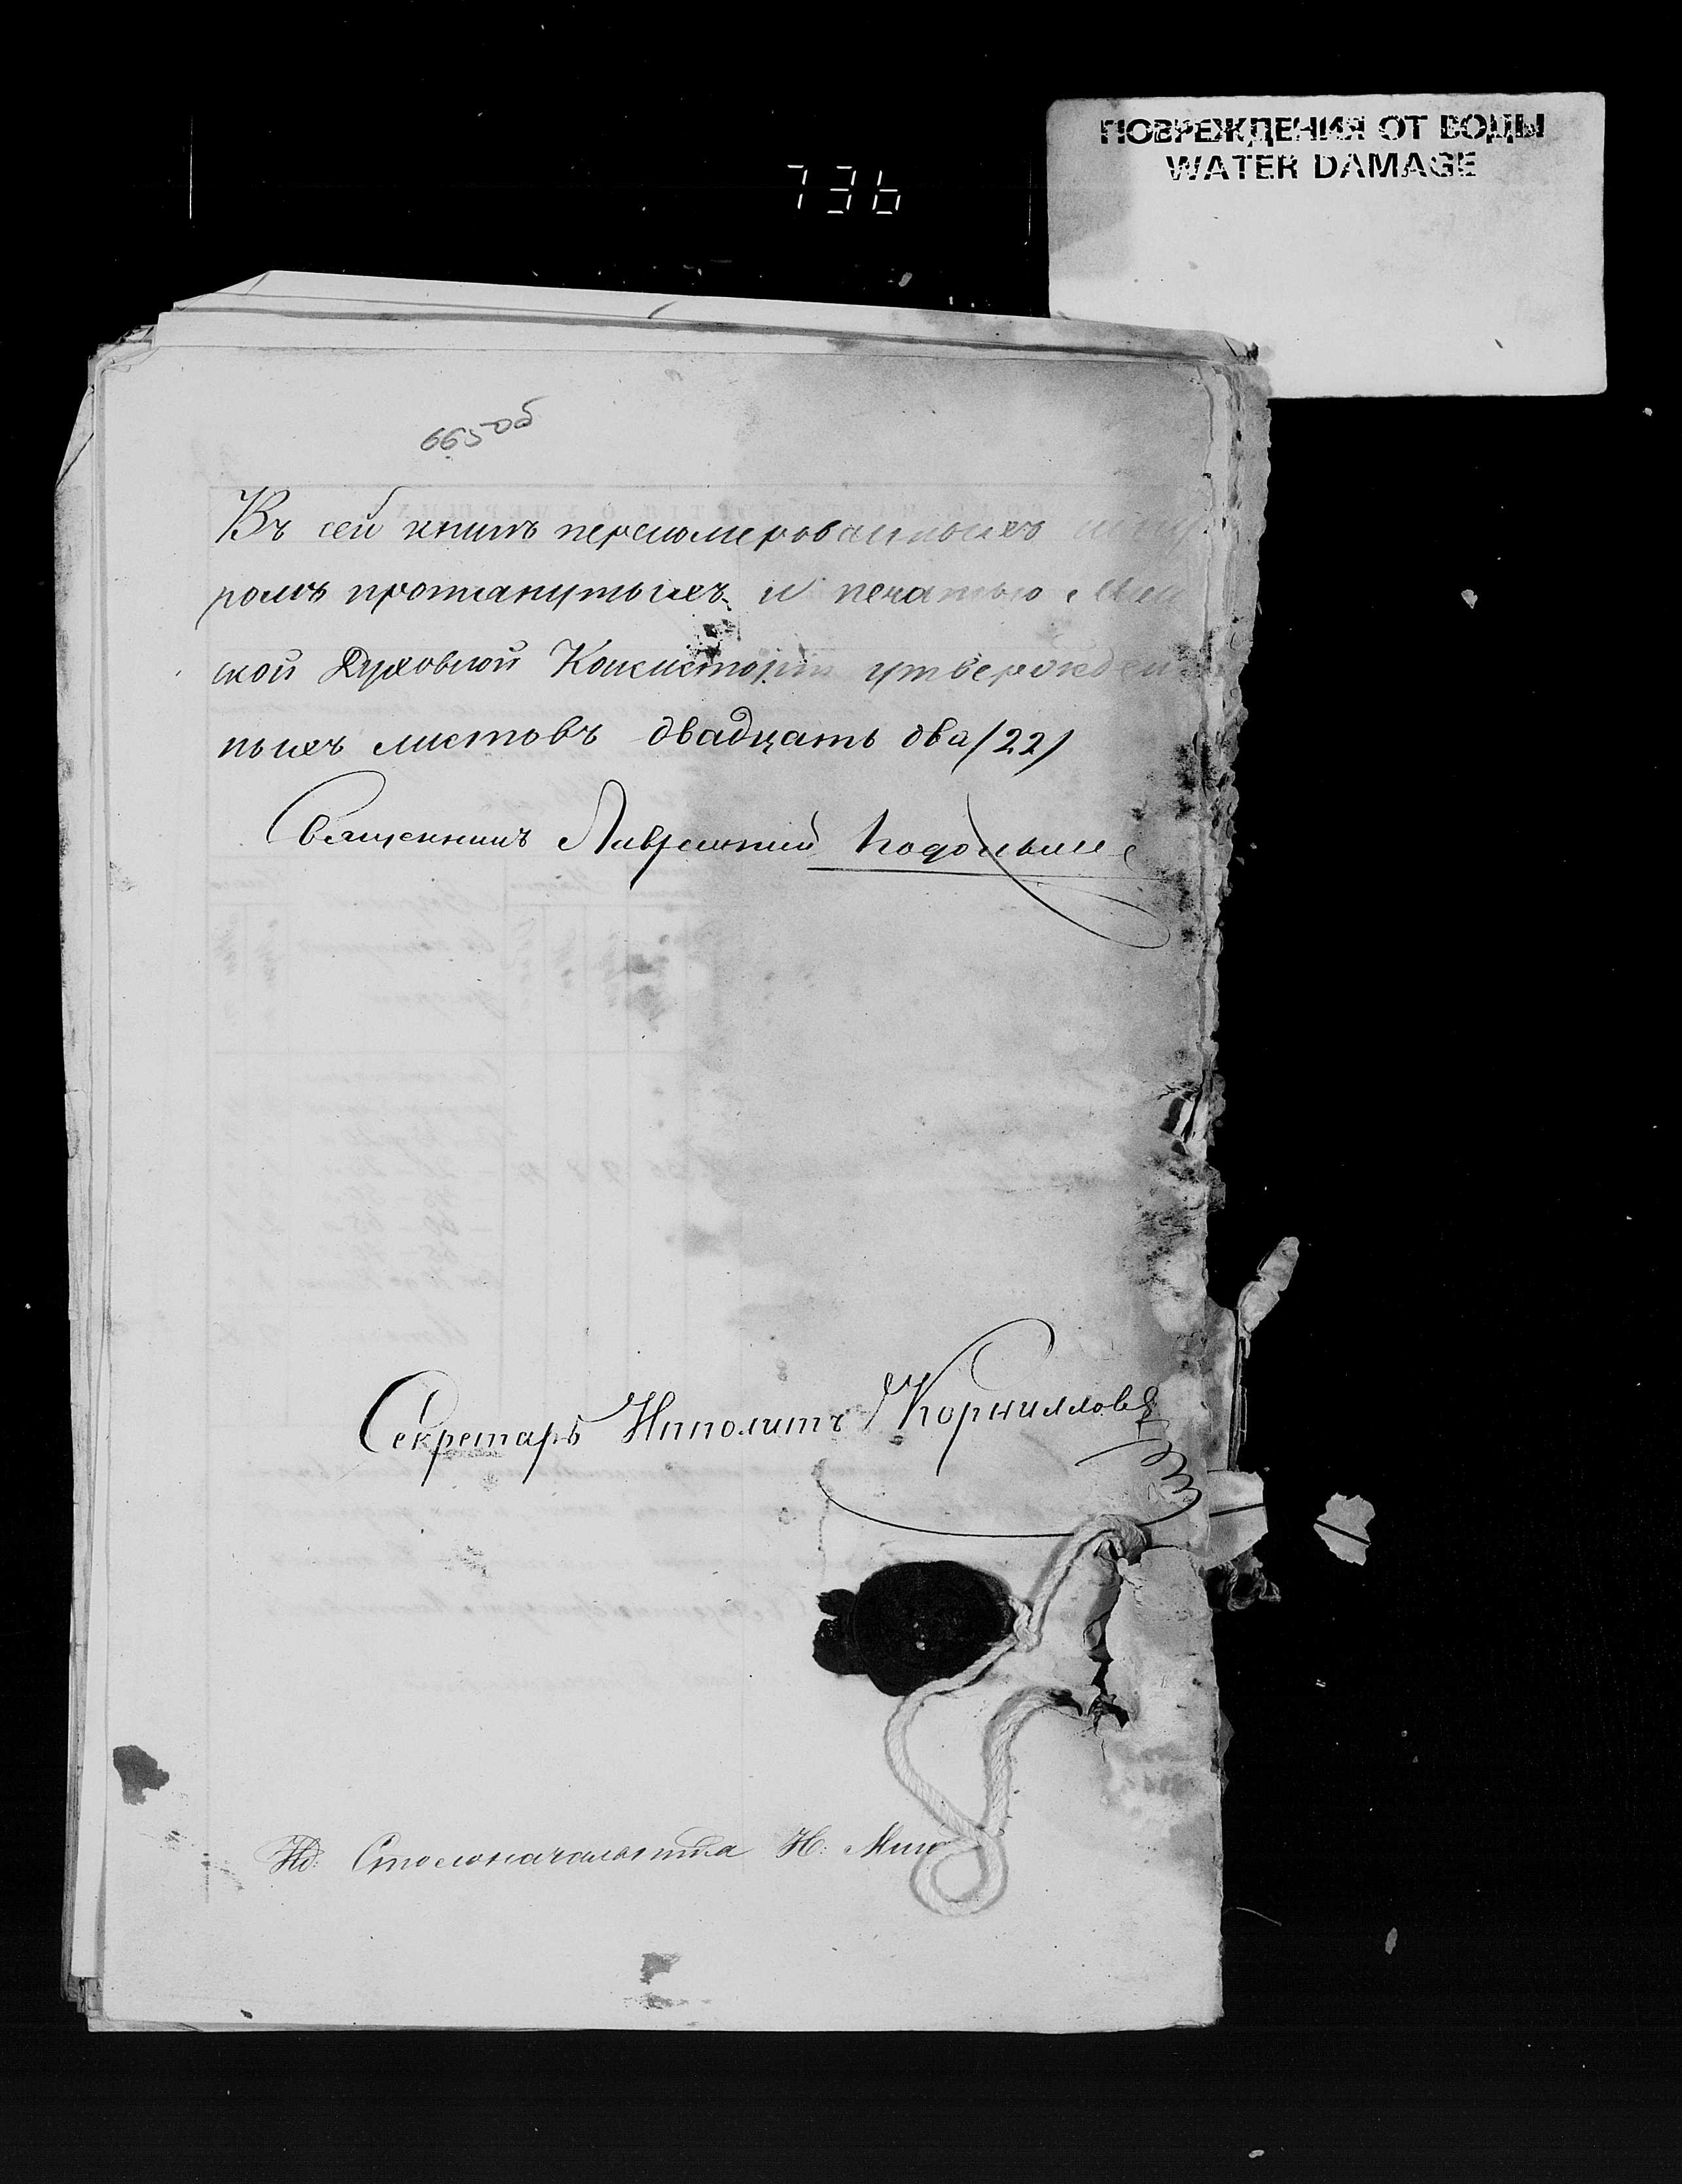 ПОВРЕЖДЕНИЯ ОТ ВОДЫ
WATER DAMAGE
736
665об
Въ сей книгѣ перномерованныхъ шну
ромъ протянутыхъ и печатью Мин
ской Духовной Консисторіи утвержден
ныхъ листовъ двадцать два /22/
Священникъ Лаврентій
Секретарь Ипполитъ Корниловъ
Ид. Столоначальника Н: